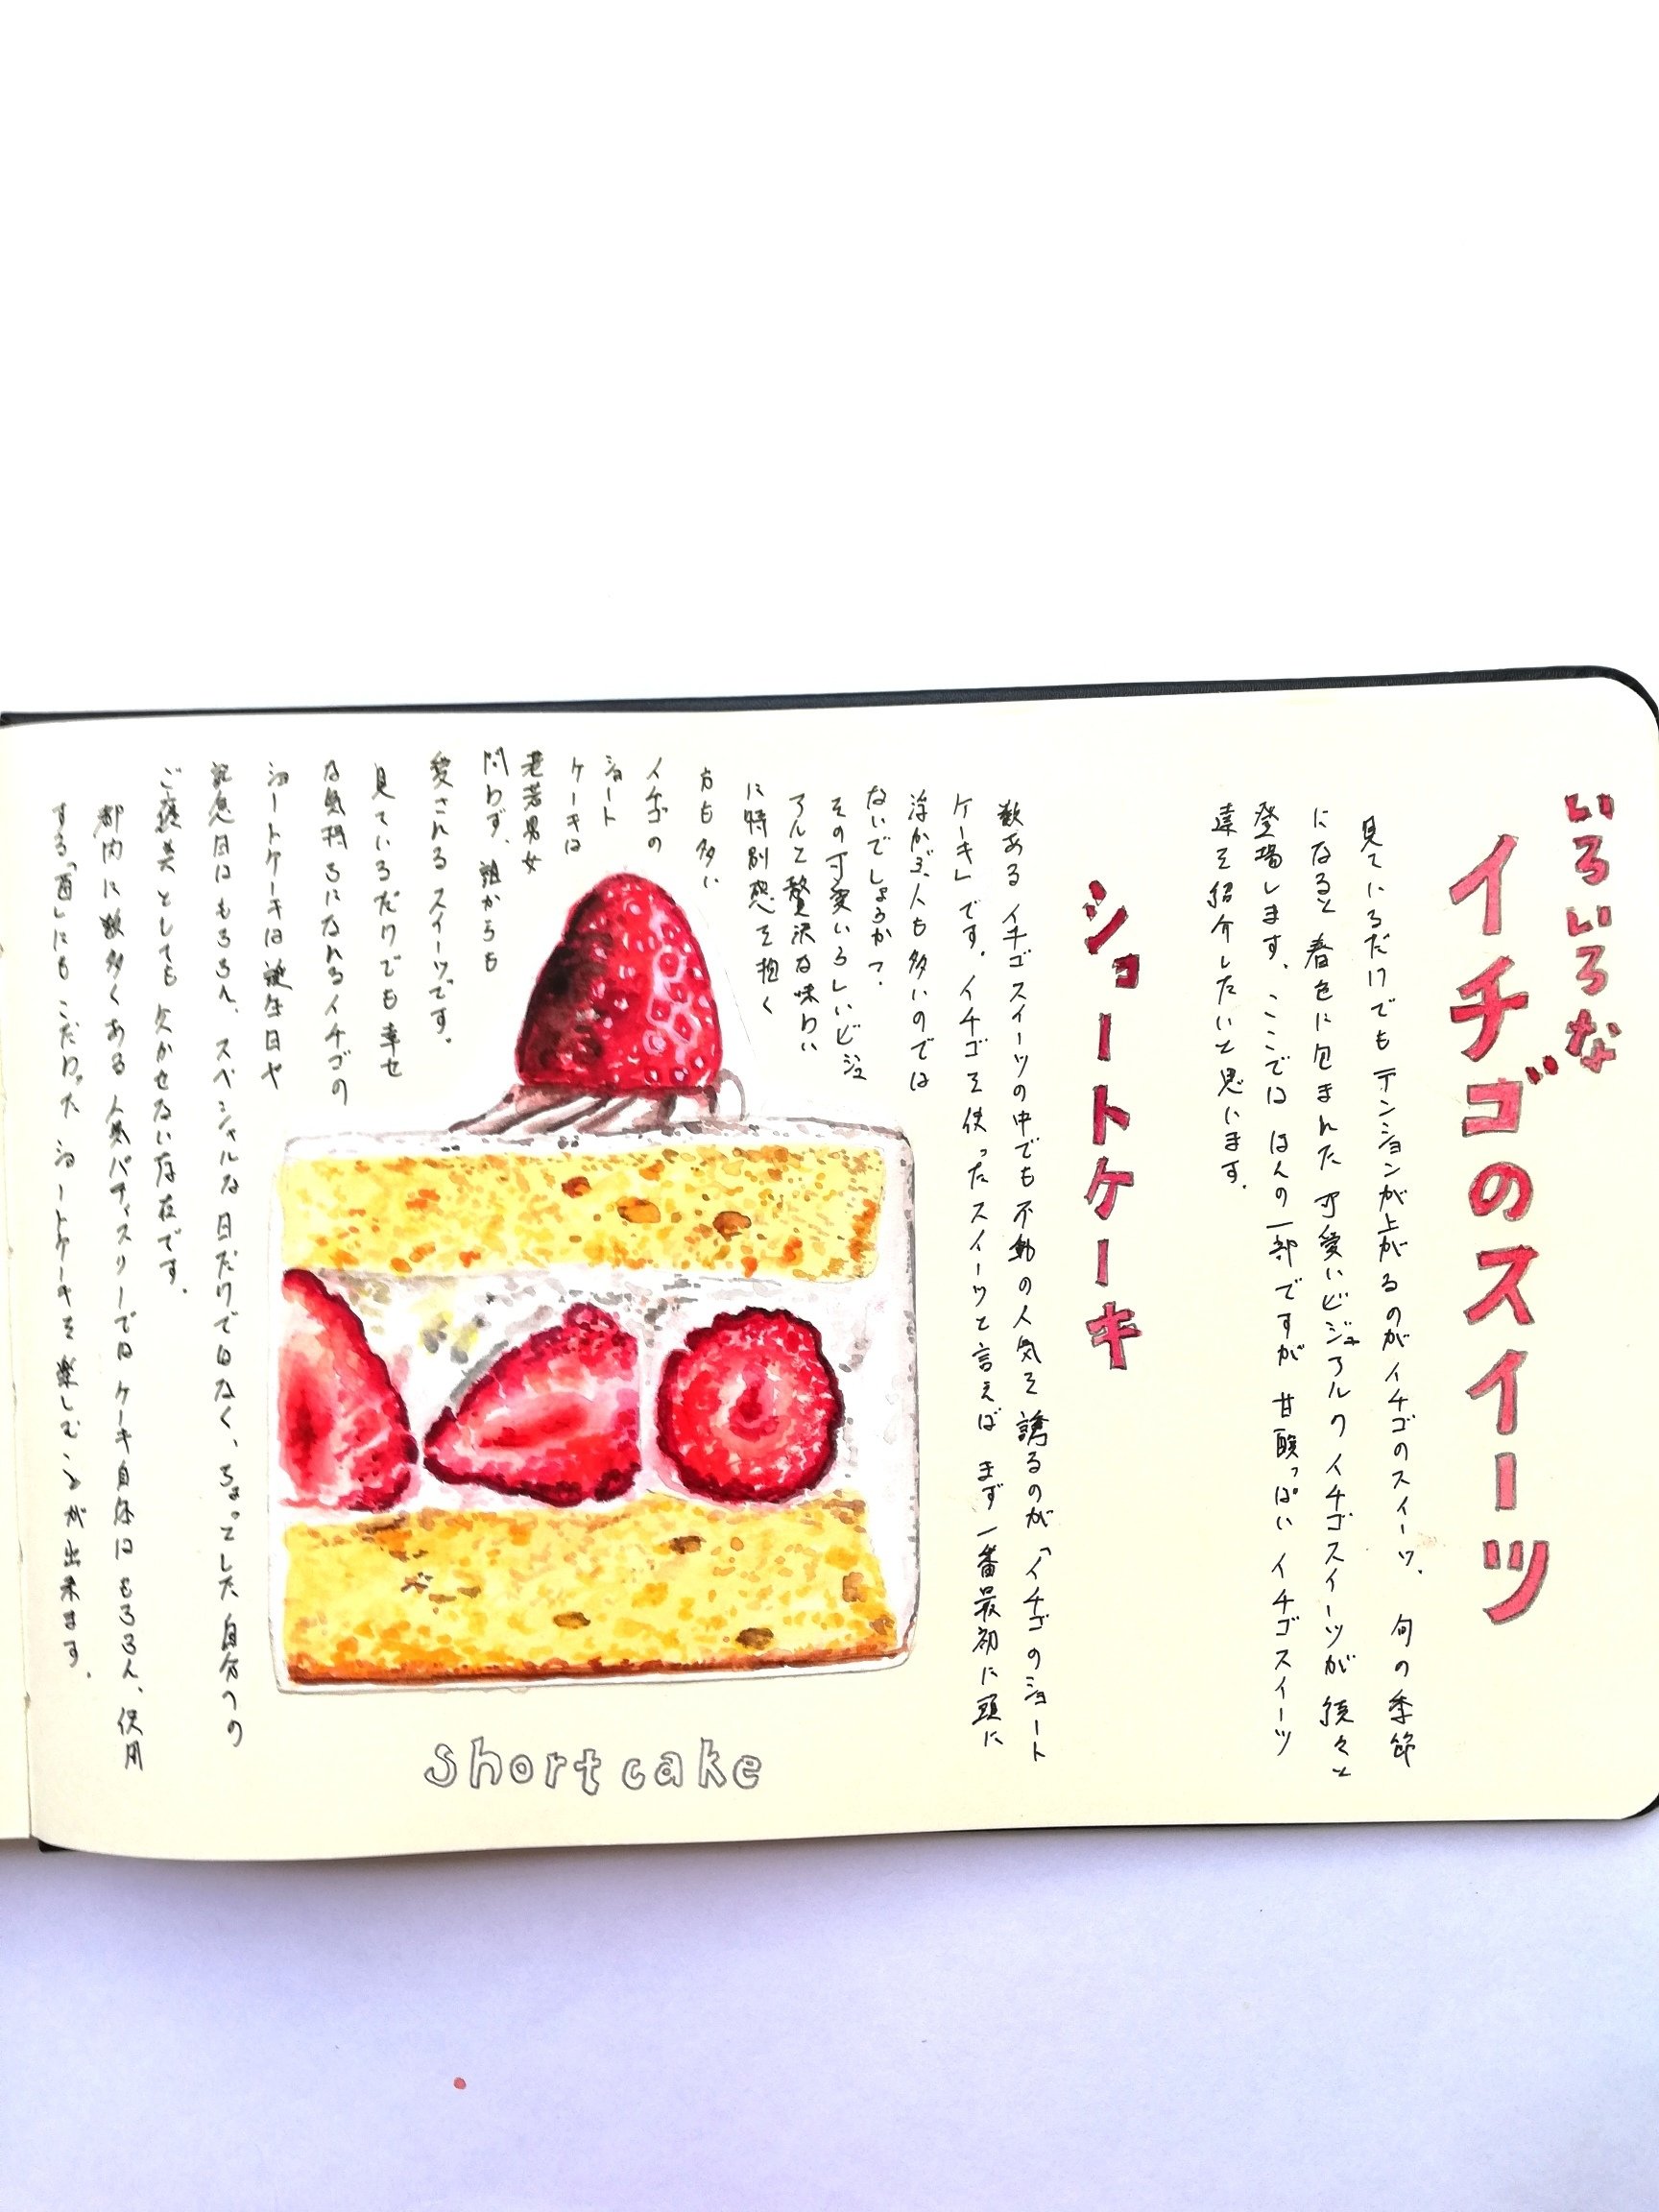 いろいろな
イチゴのスイーツ
見ているだけでもテンションが上がるのがイチゴのスイーツ。旬の季節
になると春色に包まれた可愛いビジュアルのイチゴスイーツが続々と
登場します。ここではほんの一部ですが甘酸っぱいイチゴスイーツ
達を紹介したいと思います。
ショートケーキ
数あるイチゴスイーツの中でも不動の人気を誇るのが「イチゴのショート
ケーキ」です。イチゴを使ったスイーツと言えばまず一番最初に頭に
浮かぶ人も多いのでは
ないでしょうか?
その可愛いらしいビジュ
アルと贅沢な味わい
に特別感を抱く
方も多い
イチゴの
ショート
ケーキは
老若男女
問わず、誰からも
愛されるスイーツです。
見ているだけでも幸せ
な気持ちになれるイチゴの
ショートケーキは誕生日や
記念日はもちろん、スペシャルな日だけではなく、ちょっとした自分への
ご褒美としても欠かせない存在です。
都内に数多くある人気パティスリーではケーキ自体はもちろん、使用
する「苺」にもこだわったショートケーキを楽しむことが出来ます。
short cake